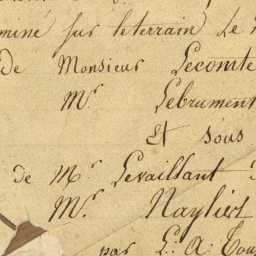 miné sur le terrain Le
de Monsieur Lecomte
Mr Lebrument
Et sous
de Mr Levaillant
Mr Naylies
par L. A. Tou